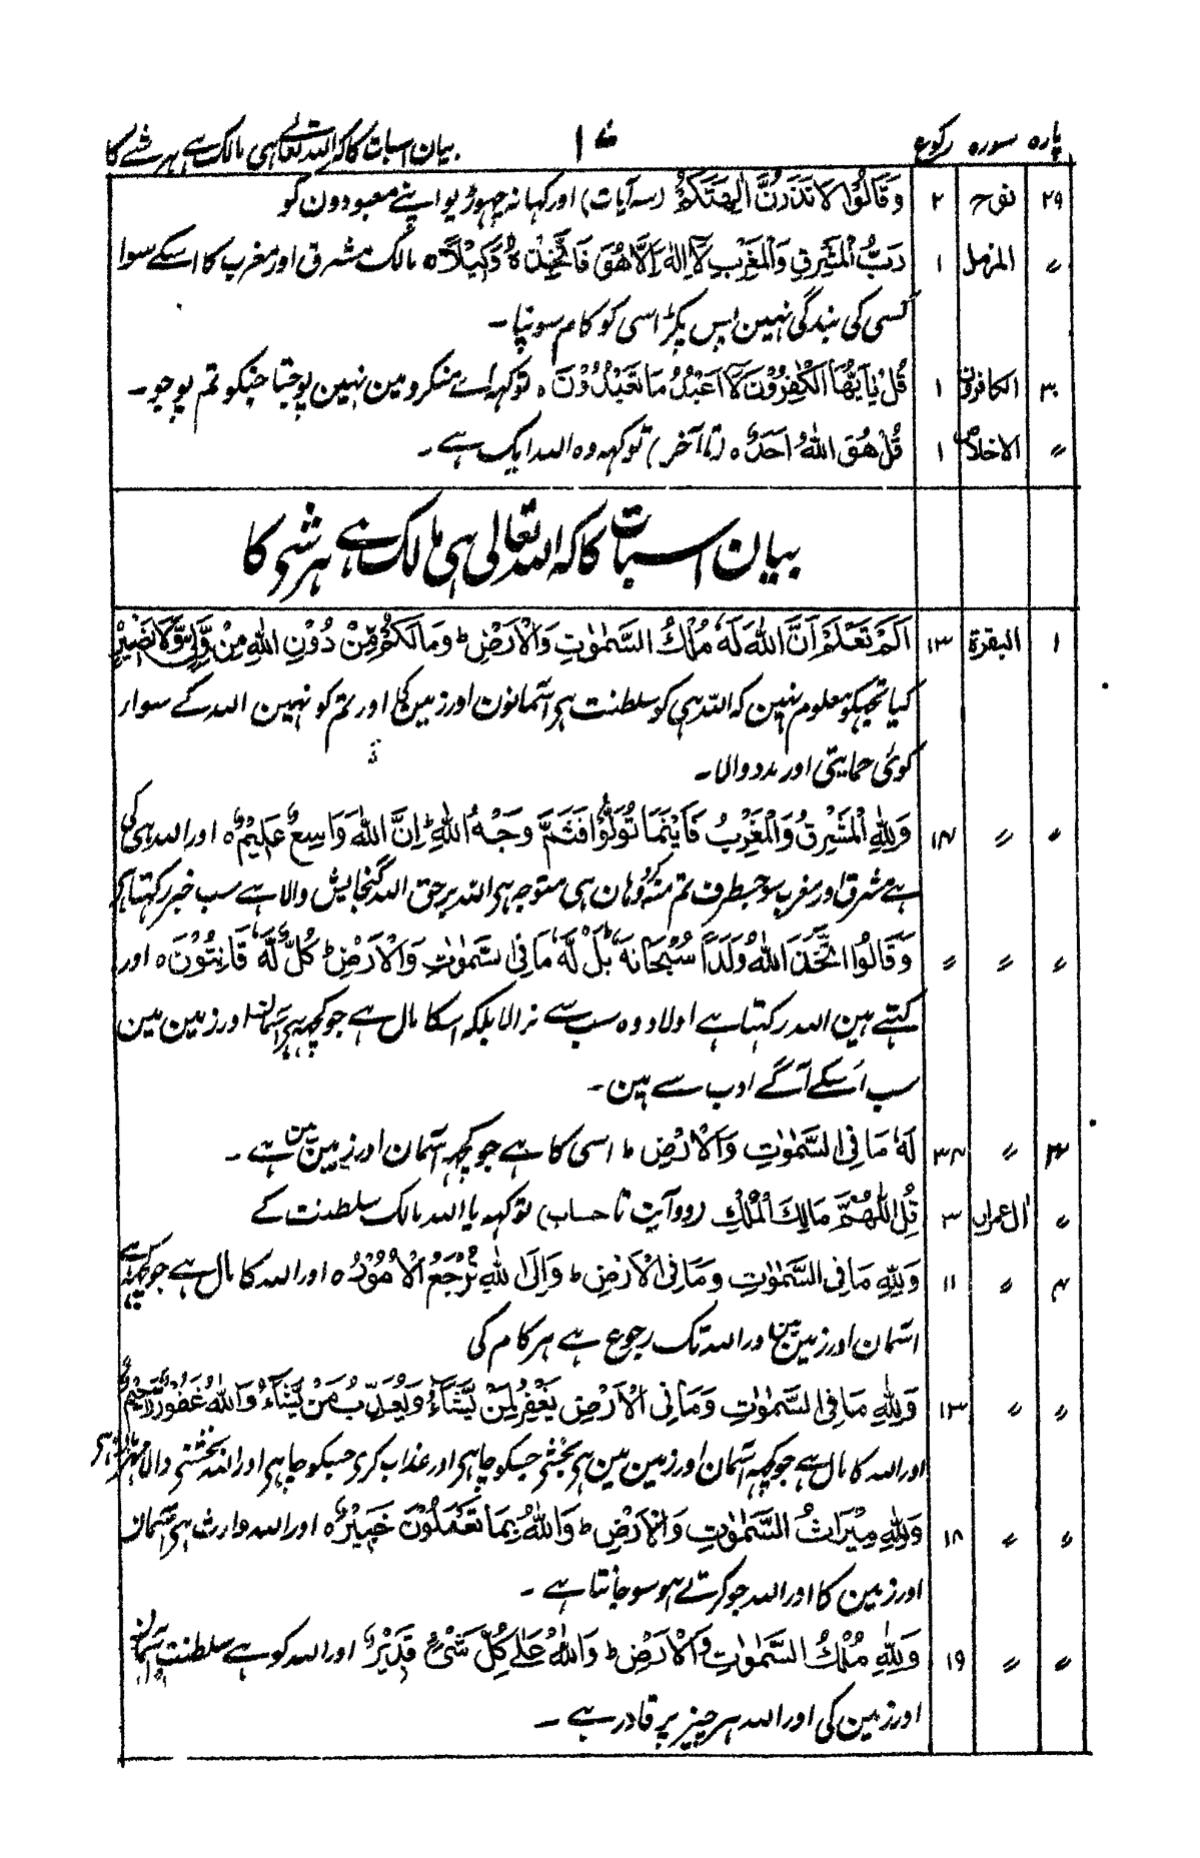 پارہ سورہ رکوع ۱۷ بیان اسبات کا کہ اللہ تعالے ہی مالک ہے ہر شے کا
۲۹ نوح ۲ وَقَالُوْا لَا تَذَرُنَّ اٰلِهَتَكُمْ (سہ آیات) اور کہا نہ چھوڑیو اپنے معبودون کو
〃 المزمل ۱ رَبُّ الْمَشْرِقِ وَالْمَغْرِبِ لَآ اِلٰهَ اِلَّا هُوَ فَاتَّخِذْهُ وَكِيْلًا ہ مالک مشرق اور مغرب کا اسکے سوا
کسی کی بندگی نہین پس پکڑ اسی کو کام سونپا۔
۳۰ الکافرون ۱ قُلْ يٰٓاَيُّهَا الْكٰفِرُوْنَ لَآ اَعْبُدُ مَا تَعْبُدُوْنَ ہ تو کہہ اے منکرو مین نہین پوجتا جنکو تم پوجو۔
〃 الاخلاص ۱ قُلْ هُوَ اللّٰهُ اَحَدٌ ہ (تا آخر) تو کہہ وہ اللہ ایک ہے۔
بیان اسبات کا کہ اللہ تعالی ہی مالک ہے ہر شی کا
۱ البقرة ۱۳ اَلَمْ تَعْلَمْ اَنَّ اللّٰهَ لَهٗ مُلْكُ السَّمٰوٰتِ وَالْاَرْضِ ط وَمَا لَكُمْ مِّنْ دُوْنِ اللّٰهِ مِنْ وَّلِيٍّ وَّلَا نَصِيْرٍ
کیا تجہکو معلوم نہین کہ اللہ ہی کو سلطنت ہی آسمانون اور زمین کی اور تم کو نہین اللہ کے سوار
کوئی حمایتی اور مدد والا۔
〃 〃 ۱۴ وَلِلّٰهِ الْمَشْرِقُ وَالْمَغْرِبُ فَاَيْنَمَا تُوَلُّوْا فَثَمَّ وَجْهُ اللّٰهِ ط اِنَّ اللّٰهَ وَاسِعٌ عَلِيْمٌ ہ اور اللہ ہی کی
ہے مشرق اور مغرب سو جسطرف تم منہ کرو وہان ہی متوجہ ہی اللہ برحق اللہ گنجایش والا ہے سب خبر رکہتا ہے
〃 〃 〃 وَقَالُوا اتَّخَذَ اللّٰهُ وَلَدًا سُبْحَانَهٗ ط بَلْ لَّهٗ مَا فِی السَّمٰوٰتِ وَالْاَرْضِ ط كُلٌّ لَّهٗ قَانِتُوْنَ ہ اور
کہتے ہین اللہ رکہتا ہے اولاد وہ سب سے نرالا بلکہ اسکا مال ہے جو کچھ ہی آسمان اور زمین مین
سب اُسکے آگے ادب سے ہین۔
۳ 〃 ۳۴ لَهٗ مَا فِی السَّمٰوٰتِ وَالْاَرْضِ ط اسی کا ہے جو کچھ آسمان اور زمین مین ہے۔
〃 ال عمران ۳ قُلِ اللّٰهُمَّ مَالِكَ الْمُلْكِ (دو آیت تا حساب) تو کہہ یا اللہ مالک سلطنت کے
۴ 〃 ۱۱ وَلِلّٰهِ مَا فِی السَّمٰوٰتِ وَمَا فِی الْاَرْضِ ط وَاِلَی اللّٰهِ تُرْجَعُ الْاُمُوْرُ ہ اور اللہ کا مال ہے جو کچھ ہے
آسمان اور زمین مین اور اللہ تک رجوع ہے ہر کام کی
〃 〃 ۱۳ وَلِلّٰهِ مَا فِی السَّمٰوٰتِ وَمَا فِی الْاَرْضِ يَغْفِرُ لِمَنْ يَّشَآءُ وَيُعَذِّبُ مَنْ يَّشَآءُ وَاللّٰهُ غَفُوْرٌ رَّحِيْمٌ
اور اللہ کا مال ہے جو کچھ آسمان اور زمین مین ہی بخشی جسکو چاہی اور عذاب کری جسکو چاہی اور اللہ بخشنی والا مہربان ہی
〃 〃 ۱۸ وَلِلّٰهِ مِيْرَاثُ السَّمٰوٰتِ وَالْاَرْضِ ط وَاللّٰهُ بِمَا تَعْمَلُوْنَ خَبِيْرٌ ہ اور اللہ وارث ہی آسمان
اور زمین کا اور اللہ جو کرتے ہو سو جانتا ہے۔
〃 〃 ۱۹ وَلِلّٰهِ مُلْكُ السَّمٰوٰتِ وَالْاَرْضِ ط وَاللّٰهُ عَلٰے كُلِّ شَیْءٍ قَدِيْرٌ اور اللہ کو ہے سلطنت آسمان
اور زمین کی اور اللہ ہر چیز پر قادر ہے۔